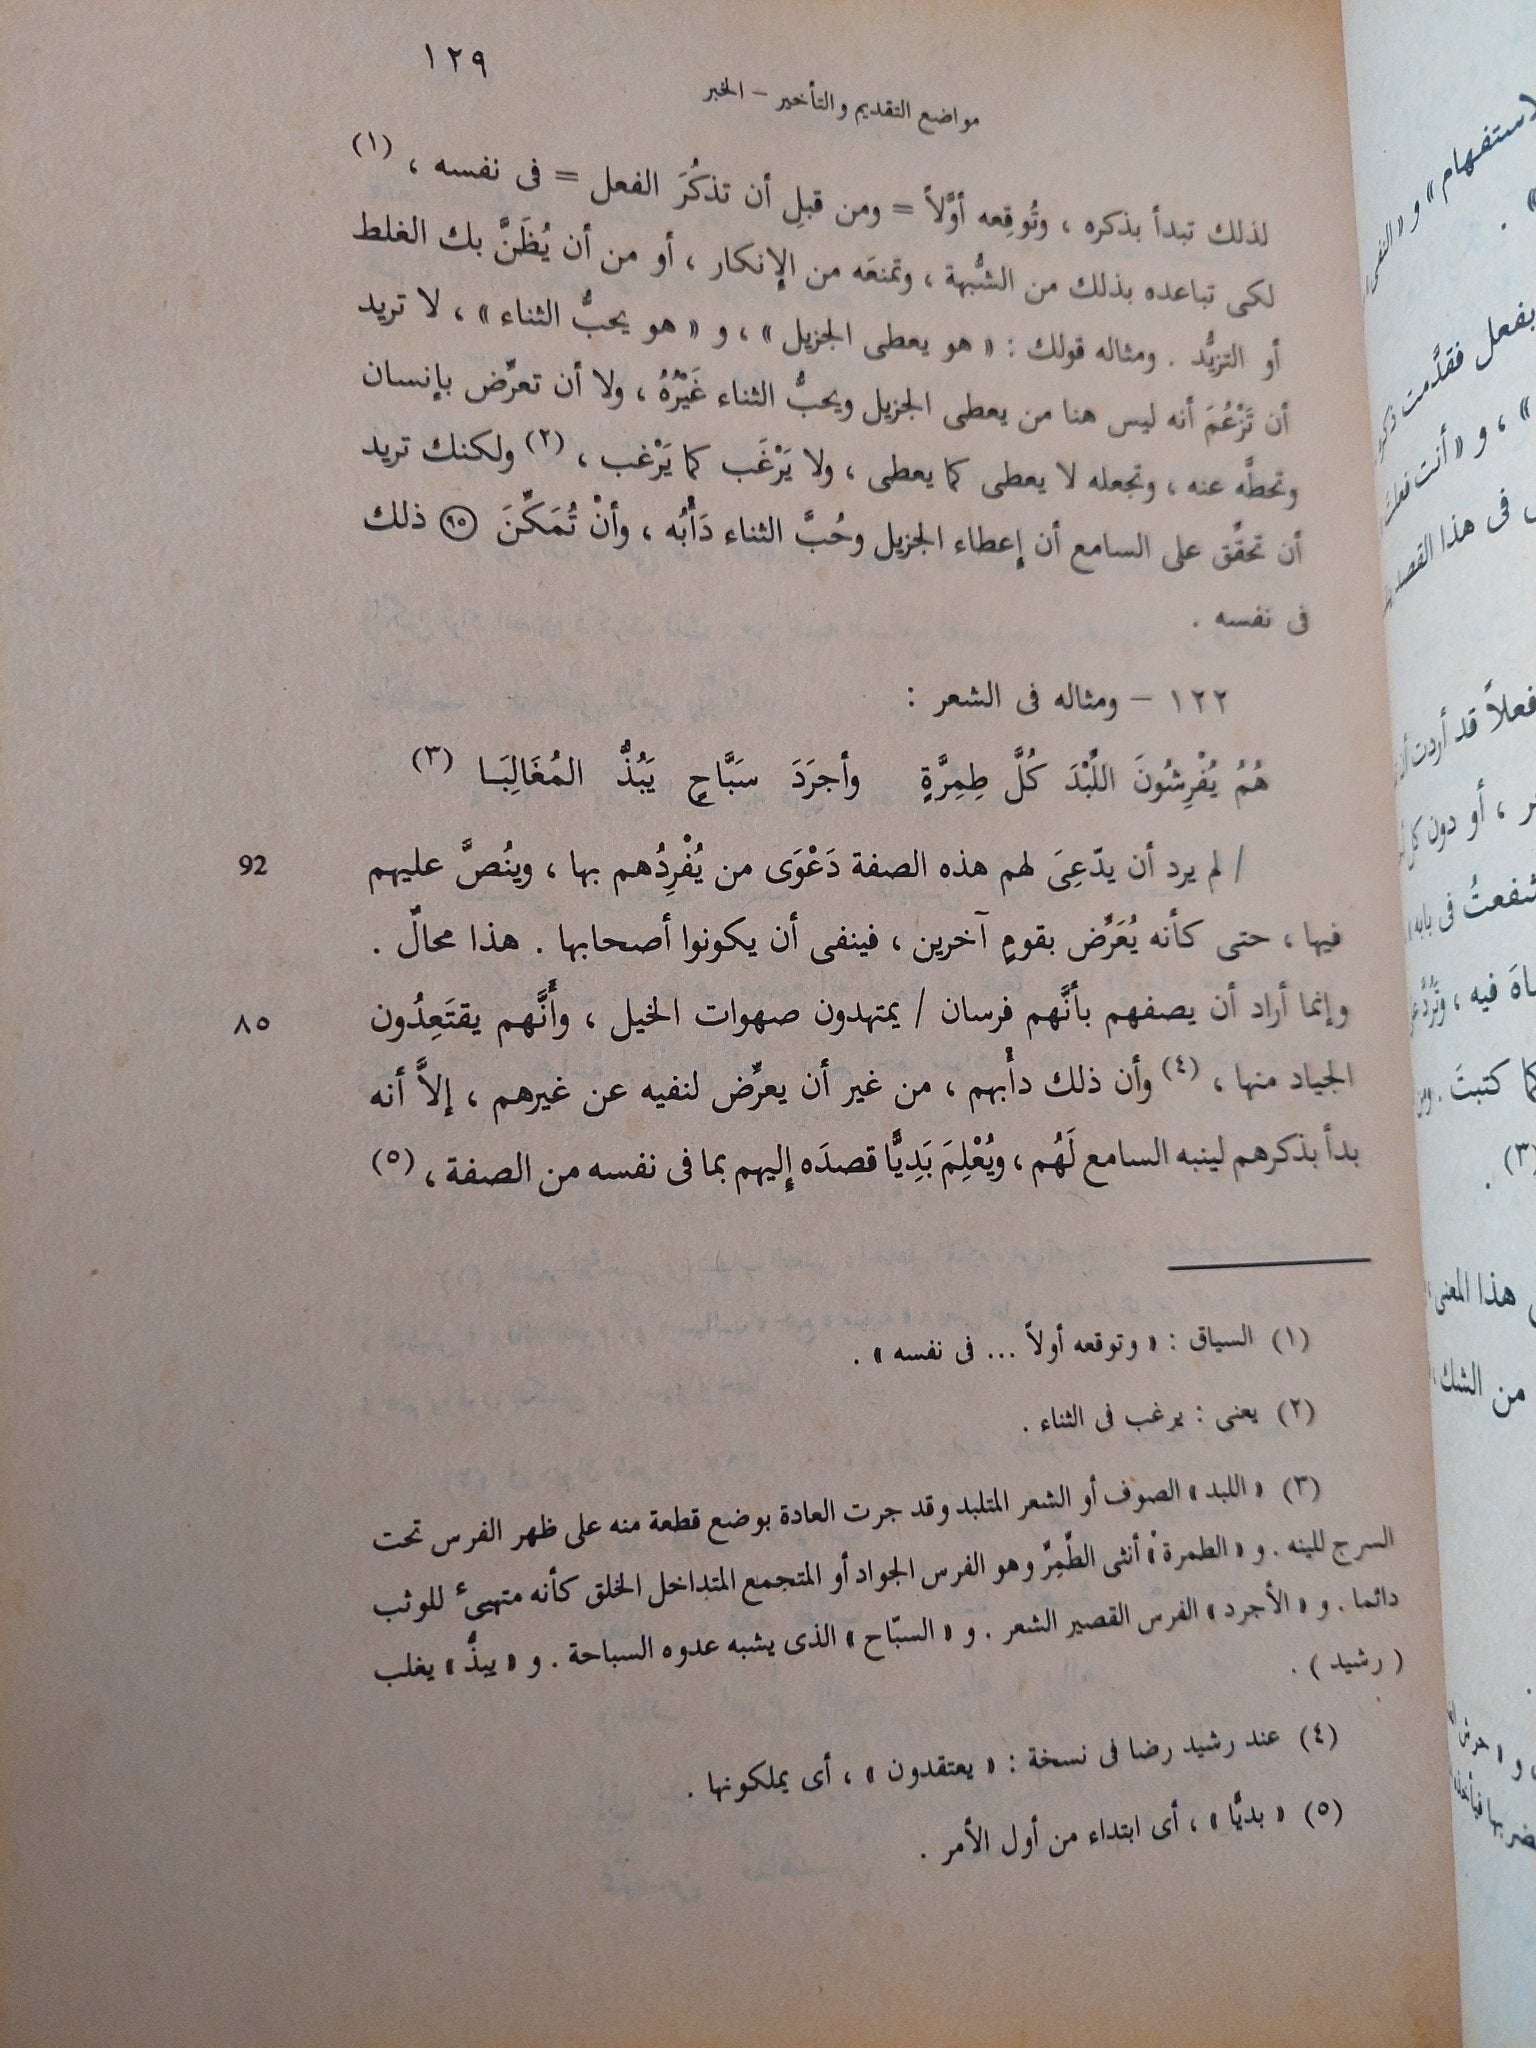 ١٢٩
مواضع التقديم والتأخير – الخبر
لذلك تبدأ بذكره ، وتُوقِعه أوَّلاً = ومن قبلِ أن تذكُرَ الفعل = فى نفسه ، (١)
لكى تباعده بذلك من الشُّبهة ، وتمنعَه من الإنكار ، أو من أن يُظَنَّ بك الغلط
أو التزيُّد . ومثاله قولك : « هو يعطى الجزيل » ، و « هو يحبُّ الثناء » ، لا تريد
أن تَزْعُمَ أنه ليس هنا من يعطى الجزيل ويحبُّ الثناء غَيْرُهُ ، ولا أن تعرِّض بإنسان
وتحطَّه عنه ، وتجعله لا يعطى كما يعطى ، ولا يَرْغَب كما يَرْغب ، (٢) ولكنك تريد
أن تحقِّق على السامع أن إعطاء الجزيل وحُبَّ الثناء دَأْبُه ، وأنْ تُمَكِّنَ (٩٥) ذلك
فى نفسه .
١٢٢ – ومثاله فى الشعر :
هُمُ يُفْرِشُونَ اللِّبْدَ كُلَّ طِمِرَّةٍ وأجرَدَ سَبَّاحٍ يَبُذُّ المُغَالِبَا (٣)
/ لم يرد أن يدّعِىَ لهم هذه الصفة دَعْوَى من يُفْرِدُهم بها ، وينُصَّ عليهم 92
فيها ، حتى كأنه يُعَرِّض بقومٍ آخرين ، فينفى أن يكونوا أصحابها . هذا محالٌ .
وإنما أراد أن يصفهم بأنَّهم فرسان / يمتهدون صهوات الخيل ، وأَنَّهم يقتَعِدُون ٨٥
الجياد منها ، (٤) وأن ذلك دأْبهم ، من غير أن يعرِّض لنفيه عن غيرهم ، إلاَّ أنه
بدأ بذكرهم لينبه السامع لَهُم ، ويُعْلِمَ بَدِيًّا قصدَه إليهم بما فى نفسه من الصفة ، (٥)
(١) السياق : « وتوقعه أولاً ... فى نفسه » .
(٢) يعنى : يرغب فى الثناء .
(٣) « اللبد » الصوف أو الشعر المتلبد وقد جرت العادة بوضع قطعة منه على ظهر الفرس تحت
السرج للينه . و « الطمرة » أنثى الطِّمِرِّ وهو الفرس الجواد أو المتجمع المتداخل الخلق كأنه متهيئ للوثب
دائما . و « الأجرد » الفرس القصير الشعر . و « السبّاح » الذى يشبه عدوه السباحة . و « يبذُّ » يغلب
( رشيد ) .
(٤) عند رشيد رضا فى نسخة : « يعتقدون » ، أى يملكونها .
(٥) « بديًّا » ، أى ابتداء من أول الأمر .
لاستفهام » و « النفى
بفعل فقدَّمت ذكر
» ، و « أنت فعلتَ
فى هذا القصد
فعلاً قد أردت أن
، أو دون كل
شفعتُ فى بابه »
فيه ، وتَرُدَّ
كما كتبتَ . ومن
(٣) .
هذا المعنى ،
من الشك ،